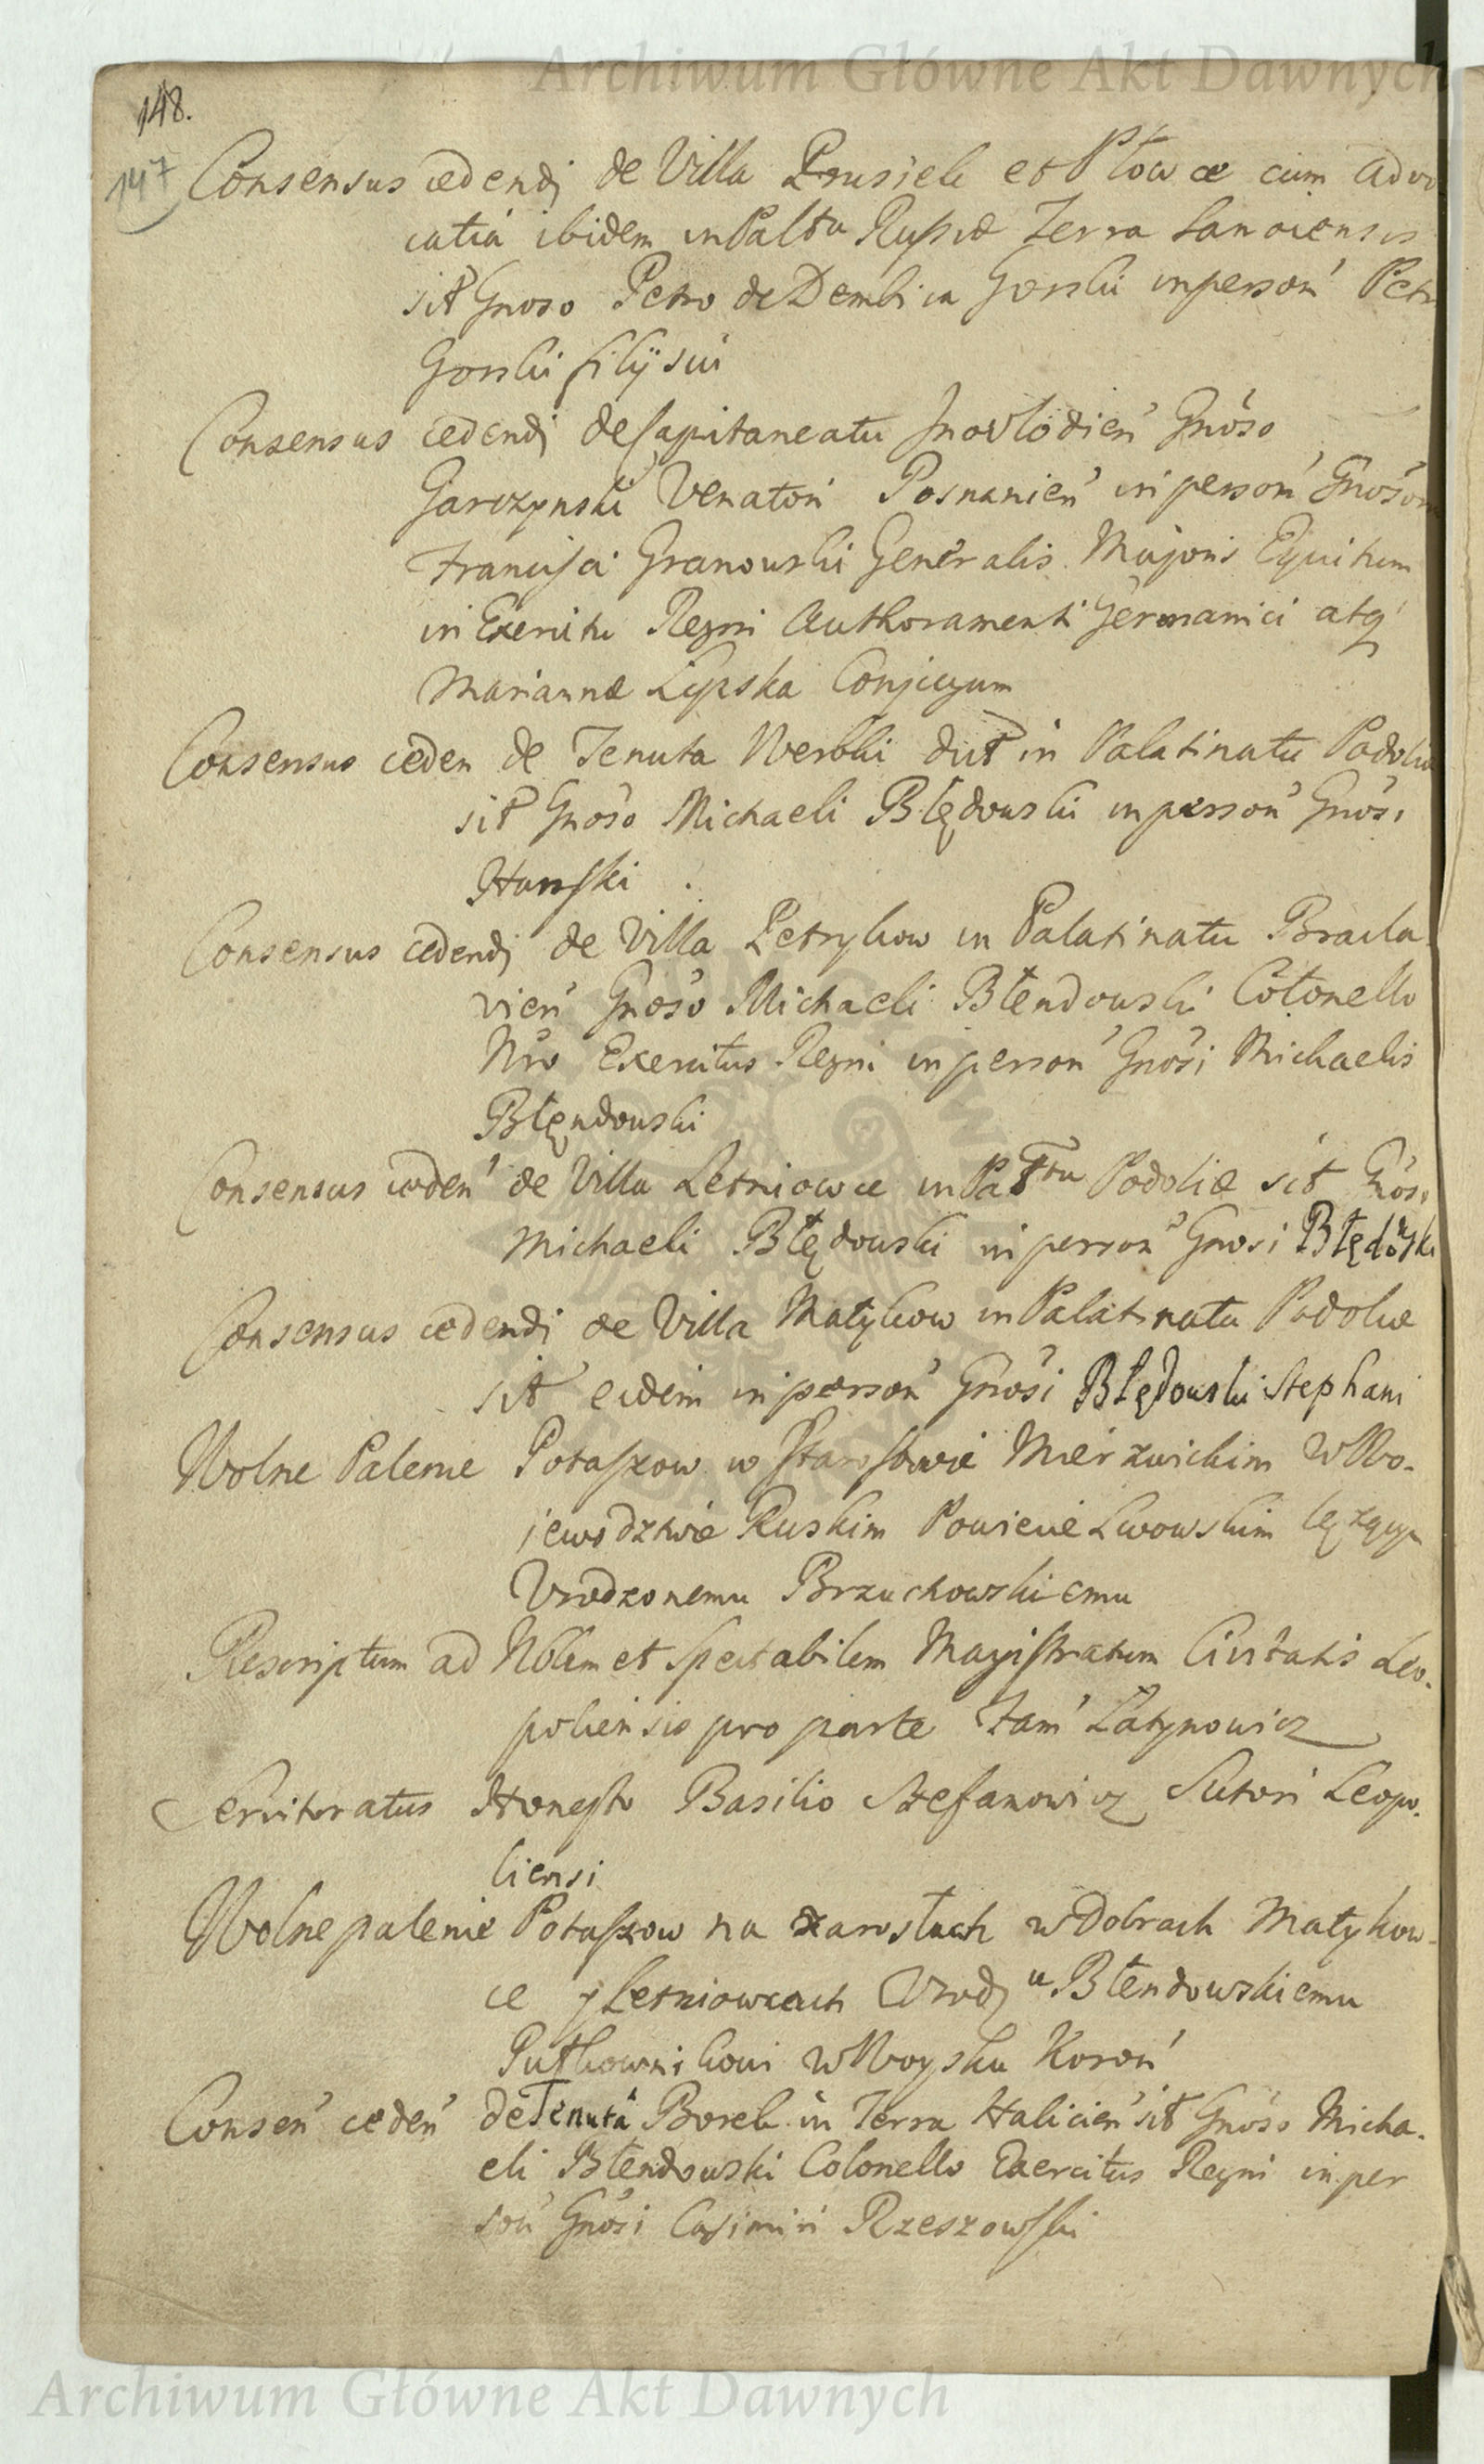 Archiwum Główne Akt Dawnych
148.
147
Consensus cedendj de Villa Prusiek et Płowce cum advo
catia ibidem in Palttu Russiæ Terra Sanocensis
sit Gnoso Petro de Dembica Gorski in person Petri
Gorski filij sui
Consensus cedendj de Capitaneatu Inovlodien Gnoso
Garczynski Venatori Posnanien in person Gnosor
Francisci Granowski Generalis Majoris Equitum
in Exercitu Regni Authoramenti Germanici atq
Mariannæ Lipska Conjugum
Consensus ceden de Tenuta Werbki dict in Palatinatu Podoliæ
sit Gnoso Michaeli Błędowski in person Gnosi
Hanski
Consensus cedendj de Villa Petrykow in Palatinatu Bracla-
vien Gnoso Michaeli Błendowski Colonello
Nro Exercitus Regni in person Gnosi Michaelis
Błęndowski
Consensus ceden de Villa Letniowce in Palttu Podoliæ sit Gnoso
Michaeli Błędowski in person Gnosi Błędowski
Consensus cedendi de Villa Matykow in Palatinatu Podoliæ
sit eidem in person Gnosi Błędowski Stephani
Wolne Palenie Potaszow w Starostwie Mierzwickim w Wo-
jewodztwie Ruskim Powiecie Lwowskim lezącym
Urodzonemu Brzuchowskiemu
Rescriptum ad Nblem et Spectabilem Magistratum Civitatis Leo-
poliensis pro parte Fam Łatynowicz
Servitoratus Honesto Basilio Stefanowicz Sutori Leopo-
liensi
Wolne palenie Potaszow na zarostach w Dobrach Matykow-
ce y Letniowcach Urodz u Błendowskiemu
Pułkownikowi w Woysku Koron
Consen ceden de Tenuta Borek in Terra Halicien sit Gnoso Micha-
eli Błendowski Colonello Exercitus Regni in per
son Gnosi Casimiri Rzeszowski
Archiwum Główne Akt Dawnych